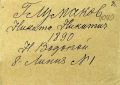 Глумаков
Никита Никитич
1890
Н Водопой
8 Линия №1